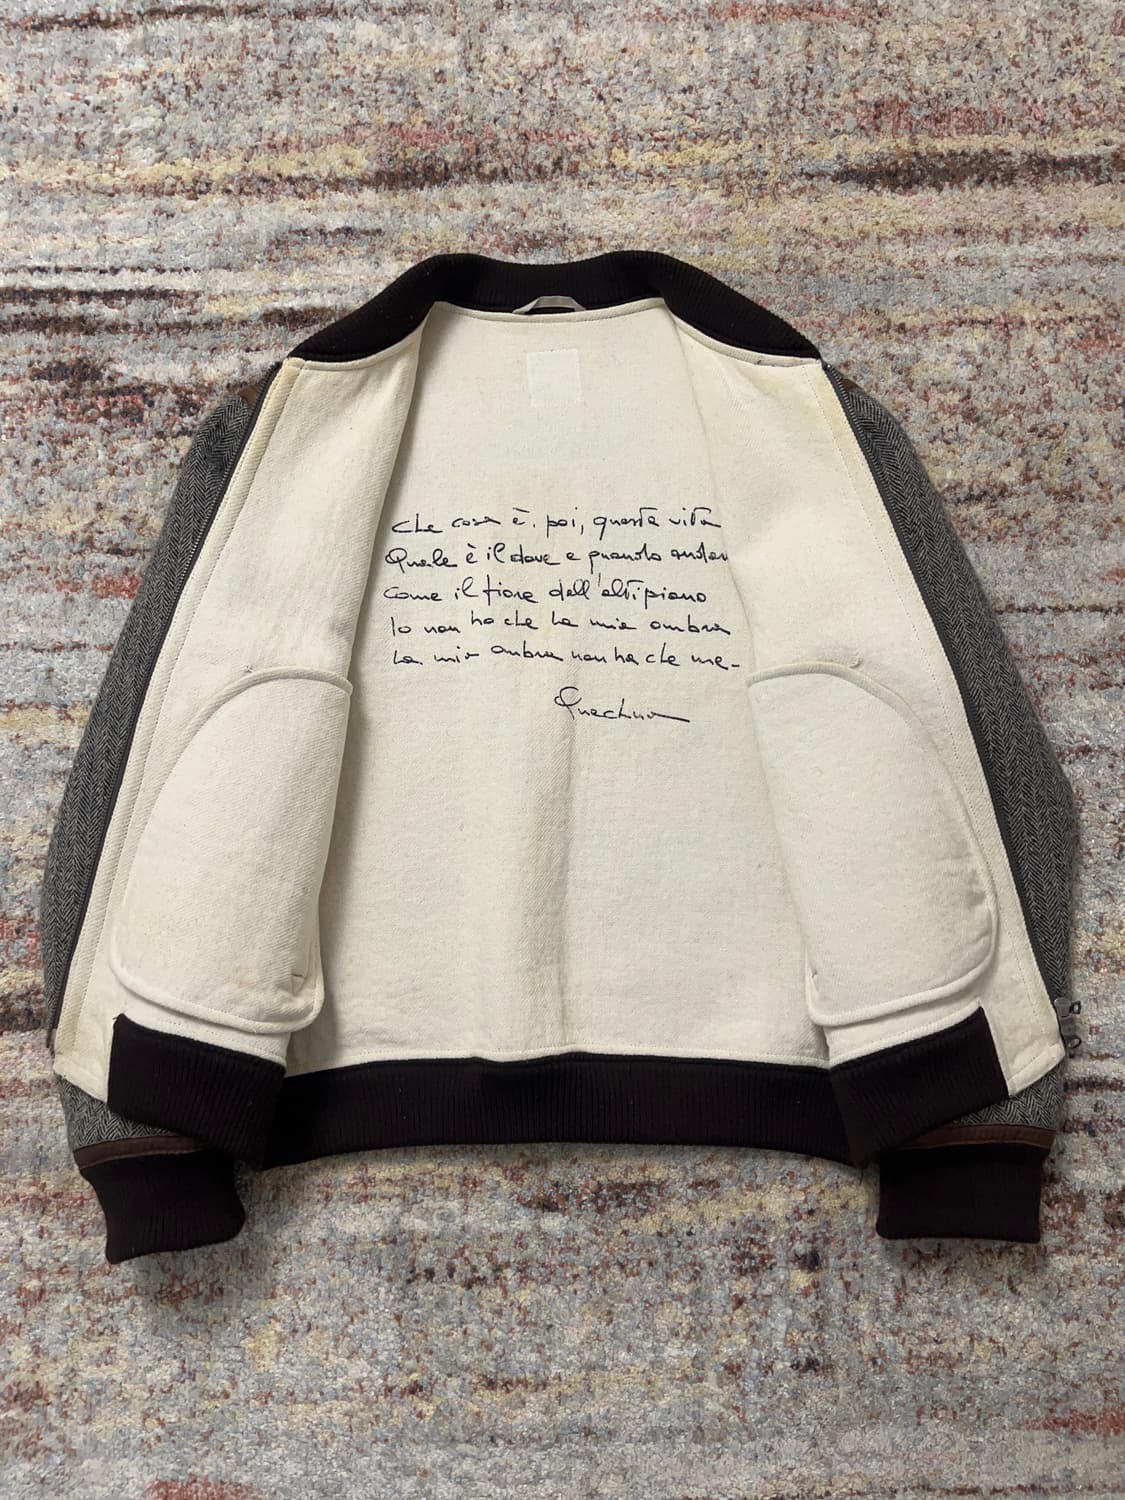 Che cosa è, poi, questa vita
Quale è il dove e quando andar
Come il fiore dell'altipiano
Io non ho che la mia ombra
La mia ombra non ha che me-
Quechua